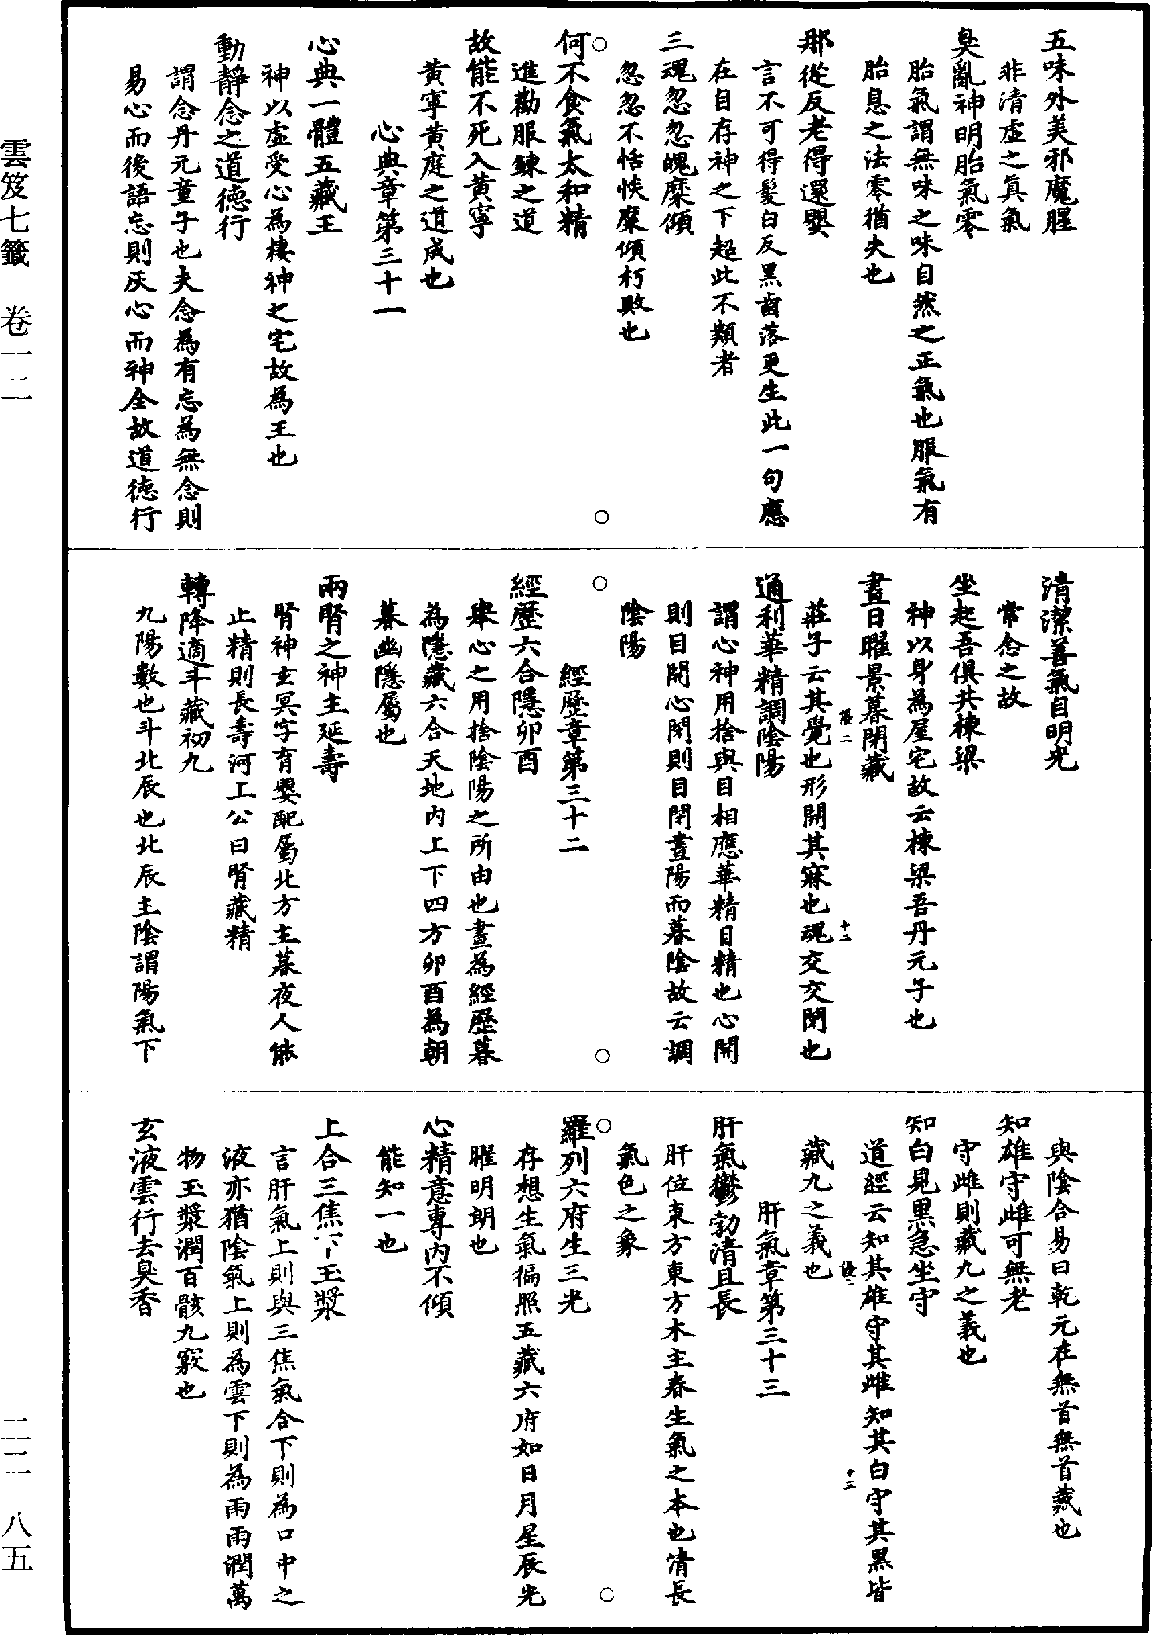 五味外美邪魔腥
非清虛之真氣
臭亂神明胎氣零
胎氣謂無味之味自然之正氣也服氣有
胎息之法零猶失也
那從反老得還嬰
言不可得髮白反黑齒落更生此一句應
在自存神之下超此不類者
三魂忽忽魄糜傾
忽忽不恬悏糜傾朽敗也
何不食氣太和精
進勸服鍊之道
故能不死入黃寧
黃寧黃庭之道成也
心典章第三十一
心典一體五藏王
神以虛受心為棲神之宅故為王也
動靜念之道德行
謂念丹元童子也夫念為有忘為無念則
易心而後語忘則灰心而神全故道德行
清潔善氣自明光
常念之故
坐起吾俱共棟梁
神以身為屋宅故云棟梁吾丹元子也
晝日曜景暮閉藏
莊子云其覺也形開其寐也魂交交閉也
通利華精調陰陽
謂心神用捨與目相應華精目精也心開
則目開心閉則目閉晝陽而暮陰故云調
陰陽
經歷章第三十二
經歷六合隱卯酉
舉心之用捨陰陽之所由也晝為經歷暮
為隱藏六合天地內上下四方卯酉為朝
暮幽隱屬也
兩腎之神主延壽
腎神玄冥字育嬰配屬北方主暮夜人能
止精則長壽河上公曰腎藏精
轉降適斗藏初九
九陽數也斗北辰也北辰主陰謂陽氣下
與陰合易曰乾元在無首無首藏也
知雄守雌可無老
守雌則藏九之義也
知白見黑急坐守
道經云知其雄守其雌知其白守其黑皆
藏九之義也
肝氣章第三十三
肝氣鬱勃清且長
肝位東方東方木主春生氣之本也清長
氣色之象
羅列六府生三光
存想生氣徧照五藏六府如日月星辰光
曜明朗也
心精意專內不傾
能知一也
上合三焦下玉漿
言肝氣上則與三焦氣合下則為口中之
液亦猶陰氣上則為雲下則為雨雨潤萬
物玉漿潤百骸九竅也
玄液雲行去臭香
雲笈七籤　卷一二
二二―八五